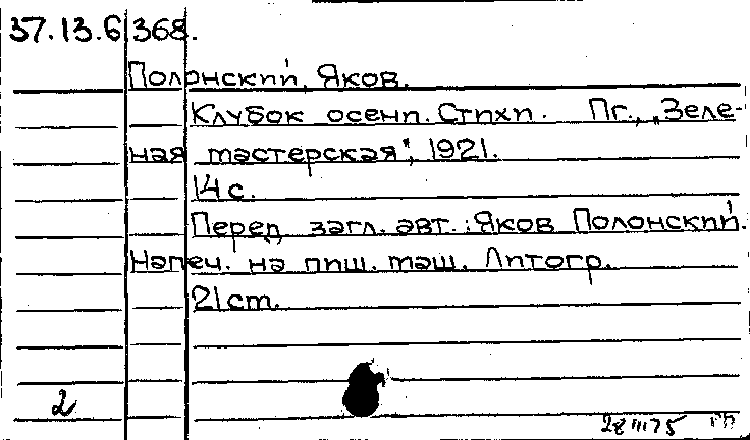 37.13.6 368.
Полонский, Яков.
Клубок осени. Стихи. Пг., „Зеле-
ная мастерская", 1921.
14 с.
Перед загл. авт.: Яков Полонский.
Напеч. на пиш. маш. Литогр.
21 cm.
2
28 III 75